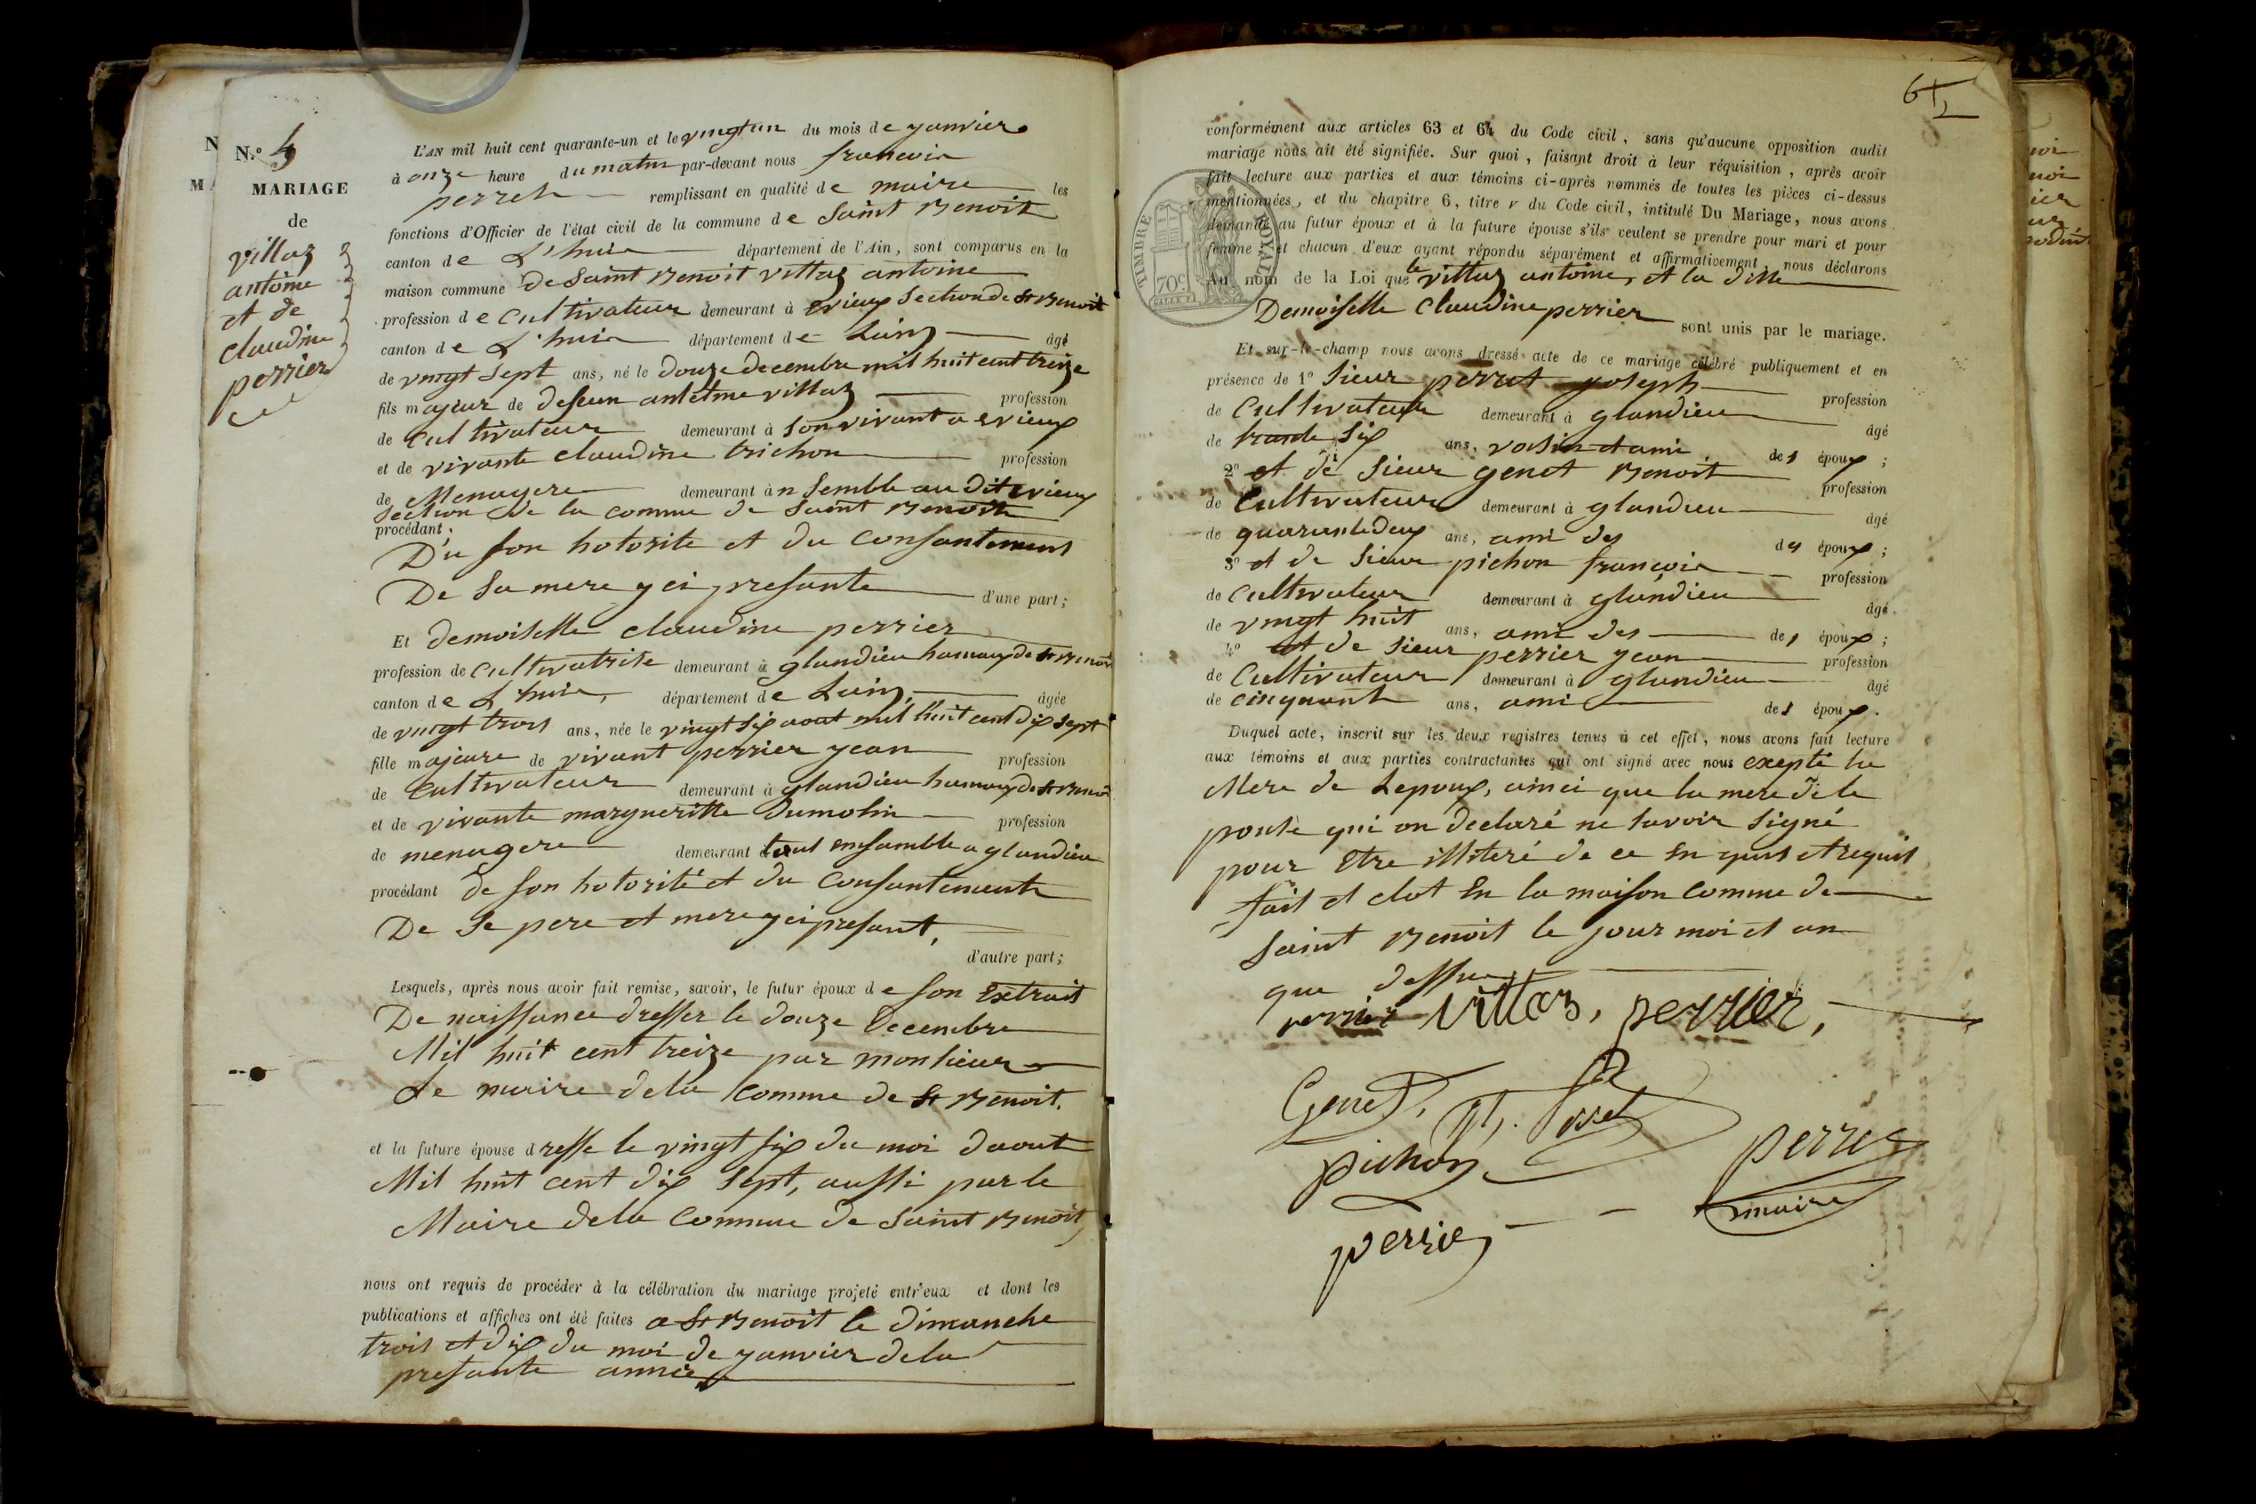 N.º 4
MARIAGE
de
villaz
antoine
et de
claudine
perrier
L'AN mil huit cent quarante-un et le vingt un du mois de yanvier
à onze heure du matin par-devant nous francois
perret remplissant en qualité de maire les
fonctions d'Officier de l'état civil de la commune de Saint Benoit
canton de L'huis département de l'Ain, sont comparus en la
maison commune de Saint Benoit villaz antoine
profession de Cultivateur demeurant à Evieux Section de St Benoit
canton de L'huis département de Lain âgé
de vingt Sept ans, né le douze decembre mil huit cent treize
fils majeur de defeun antelme villaz profession
de Cultivateur demeurant à Son vivant a evieux
et de vivante claudine trichon profession
de Menagere demeurant àn Semble au Dit evieux
Section de la comme de Saint Benoit
procédant,
Du Son hotorite et du Consantement
De Sa mere y ci presante d'une part;
Et demoiselle claudine perrier
profession de Cultivatrise demeurant à glandieu hamaux de St Benoit
canton de L'huis, département de Lain, âgée
de vingt trois ans, née le vingt six aout mil huit cent dix sept
fille majeure de vivant perrier yean profession
de Cultivateur demeurant à glandieu hamaux de St Benoit
et de vivante margueritte Dumolin profession
de menagere demeurant tout ensamble a glandieu
procédant de son hotorité et du Consantement
De Se pere et mere y ci presant,
d'autre part;
Lesquels, après nous avoir fait remise, savoir, le futur époux de son Extrait
De naissance dresser le douze Decembre
Mil huit cent treize par monsieur
Le maire dela Comme de St Benoit.
et la future épouse dresse le vingt six du moi daout
Mil huit cent dix Sept, aussi par le
Maire dela Comme de Saint Benoit,
nous ont requis de procéder à la célébration du mariage projeté entr'eux et dont les
publications et affiches ont été faites a St Benoit le dimanche
trois et dix du moi de yanvier dela
presante année
conformément aux articles 63 et 64 du Code civil, sans qu'aucune opposition audit
mariage nous ait été signifiée. Sur quoi, faisant droit à leur réquisition, après avoir
fait lecture aux parties et aux témoins ci-après nommés de toutes les pièces ci-dessus
mentionnées, et du chapitre 6, titre V du Code civil, intitulé Du Mariage, nous avons
demandé au futur époux et à la future épouse s'ils veulent se prendre pour mari et pour
femme; et chacun d'eux ayant répondu séparément et affirmativement, nous déclarons
Au nom de la Loi que le villaz antoine, et la dille
Demoiselle Claudine perrier sont unis par le mariage.
TIMBRE ROYAL
70c
Et sur-le-champ nous avons dressé acte de ce mariage célébré publiquement et en
présence de 1º Sieur perret yoseph profession
de Cultivateur demeurant à glandieu âgé
de trante Six ans, voisin et ami des époux;
2º et de Sieur genet Benoit profession
de Cultivateur demeurant à glandieu âgé
de quarante deux ans, ami des des époux;
3º et de Sieur pichon françois profession
de Cultivateur demeurant à glandieu âgé
de vingt huit ans, ami des des époux;
4º et de Sieur perrier yean profession
de Cultivateur demeurant à glandieu âgé
de cinquant ans, ami des époux.
Duquel acte, inscrit sur les deux registres tenus à cet effet, nous avons fait lecture
aux témoins et aux parties contractantes qui ont signé avec nous exepté la
Mere de Lepoux, ainci que la mere de le
pouse qui on declaré ne savoir signé
pour Etre illiteré de ce En quis et requis
fait et clot En la maison comme de
Saint Benoit le jour moi et an
que dessus
perrier villaz, perrier,
Genet,
pichon
perret
maire
perrier